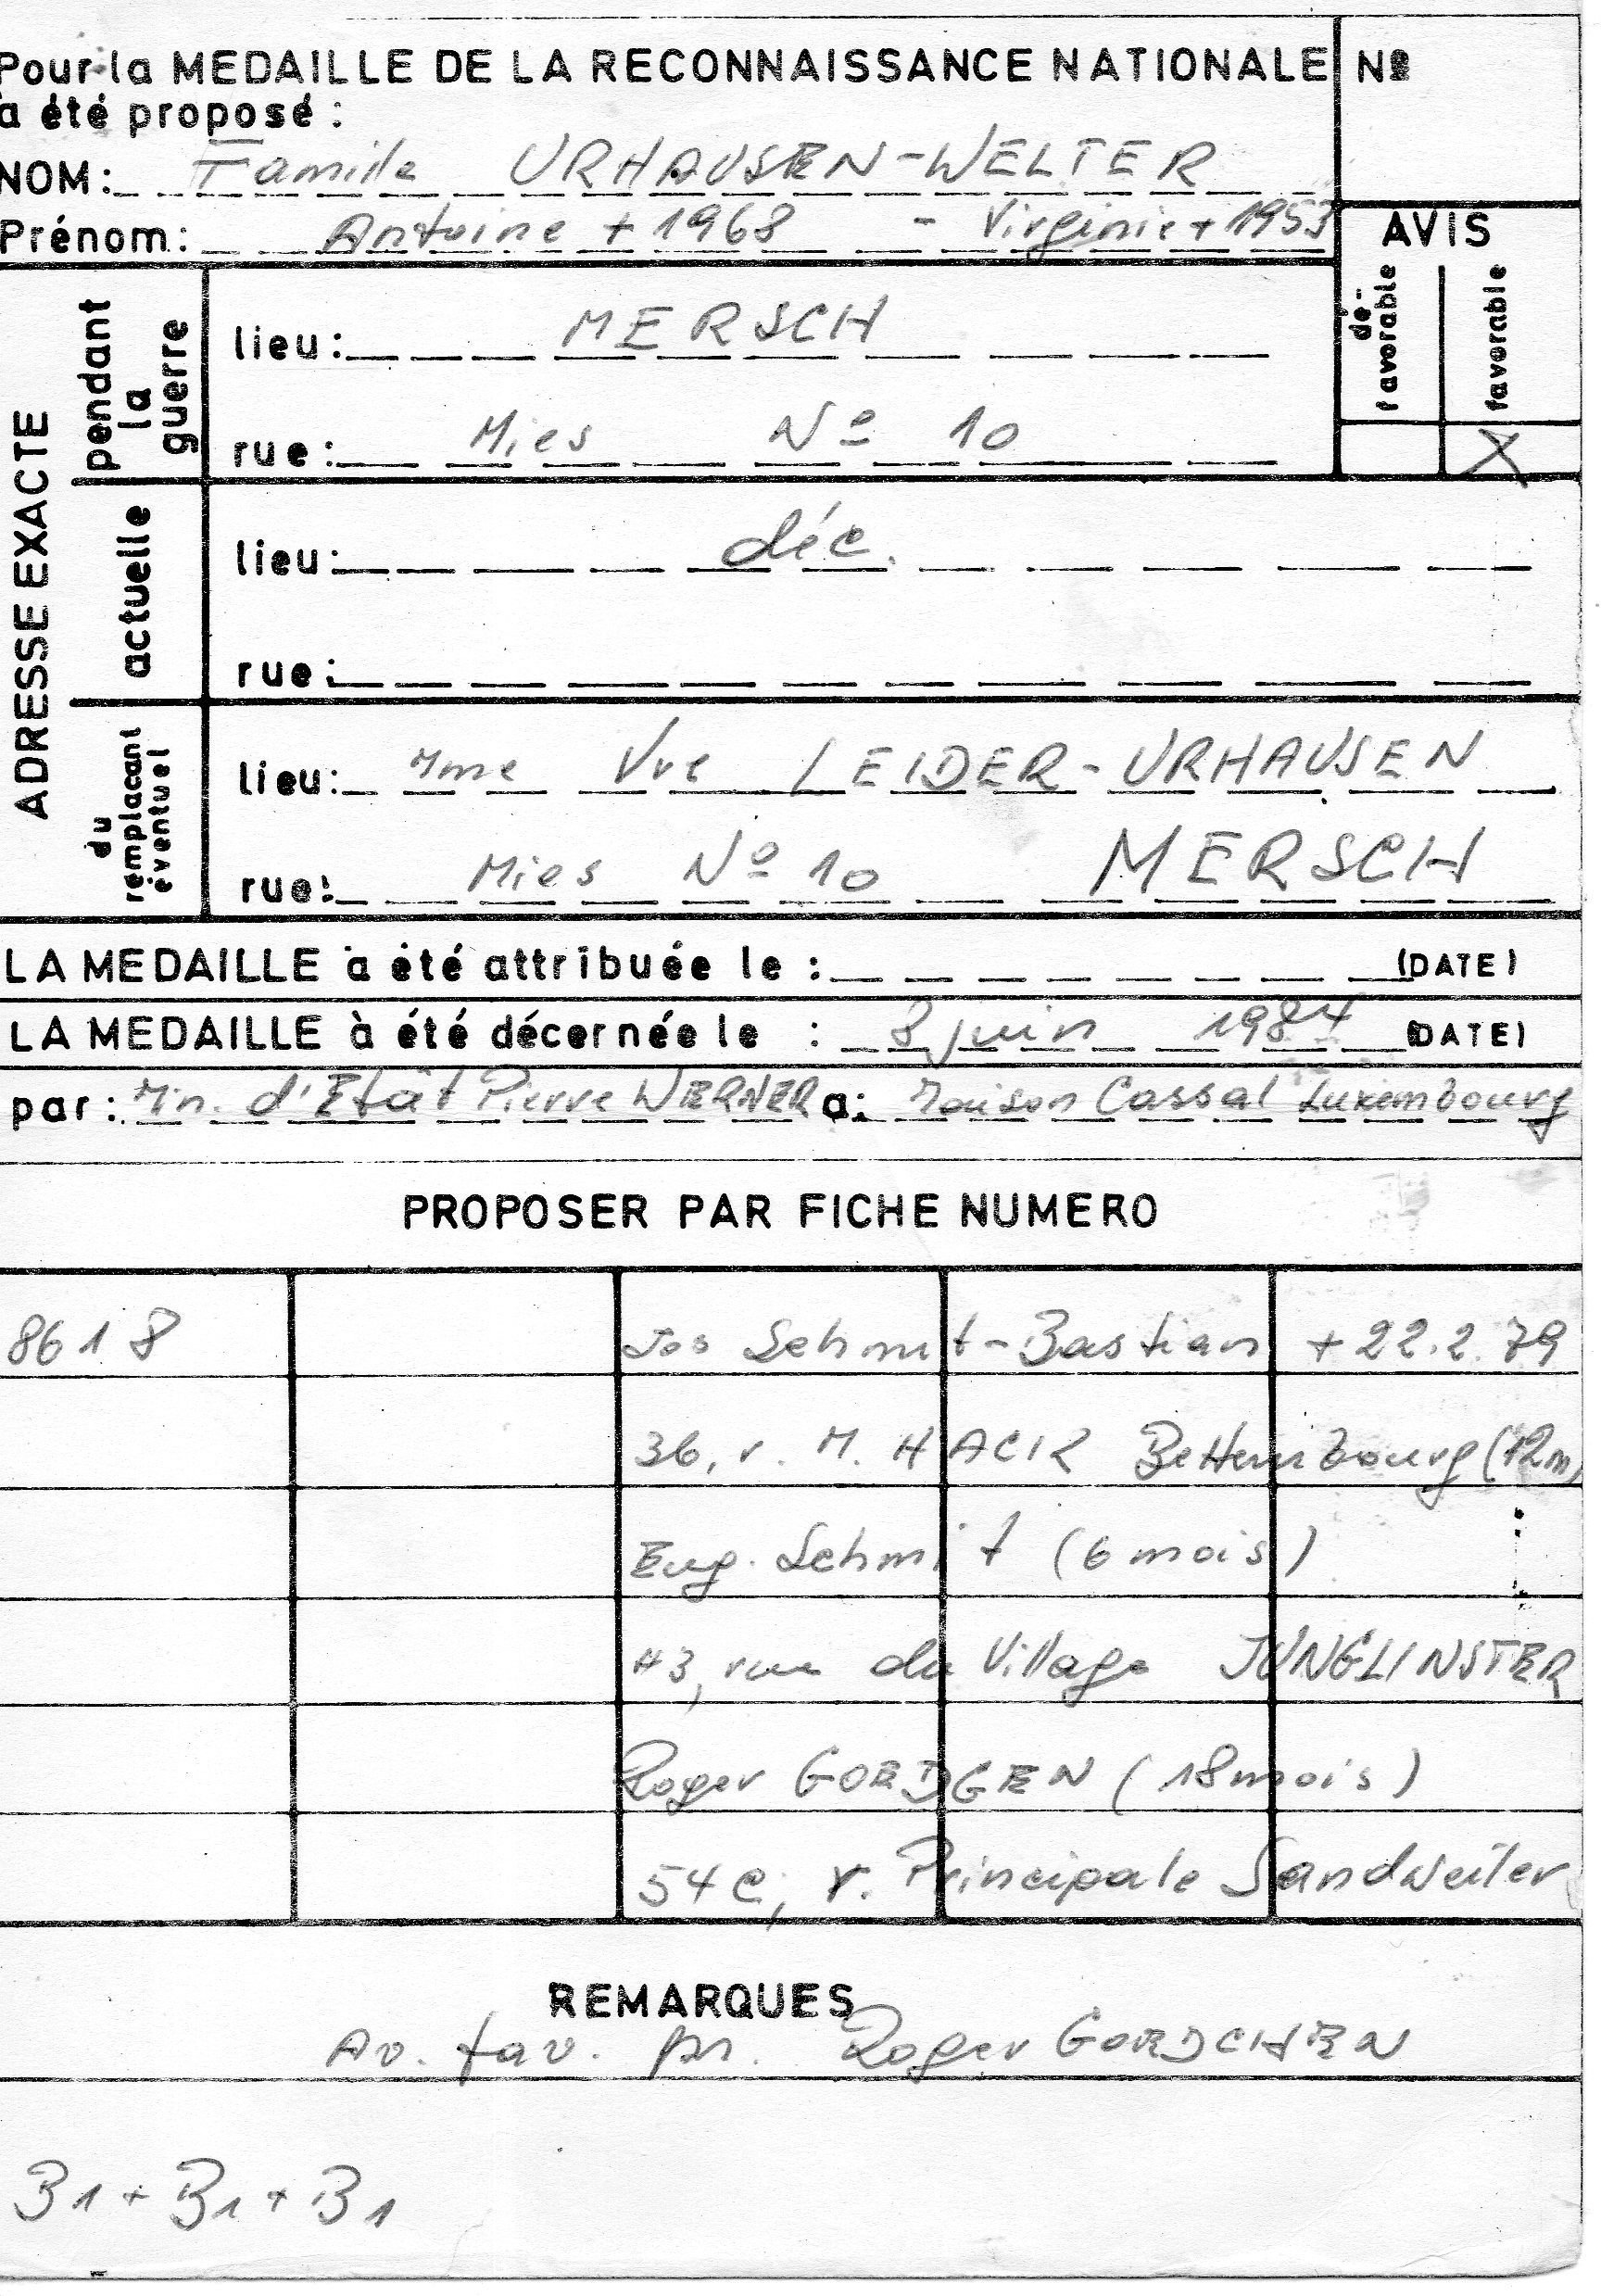 Pour la MEDAILLE DE LA RECONNAISSANCE NATIONALE Nº
a été proposé :
NOM: Famille URHAUSEN-WELTER
Prénom: Antoine + 1968 - Virginie + 1953
AVIS
dé-favorable
favorable
X
ADRESSE EXACTE
pendant la guerre
lieu: MERSCH
rue: Mies Nº 10
actuelle
lieu: déc.
rue:
du remplacant éventuel
lieu: Mme Vve LEIDER-URHAUSEN
rue: Mies Nº 10 MERSCH
LA MEDAILLE a été attribuée le : (DATE)
LA MEDAILLE à été décernée le : 3 juin 1984 (DATE)
par: Min. d'Etât Pierre WERNER a: Maison Cassal Luxembourg
PROPOSER PAR FICHE NUMERO
8618 Jos Schmit-Bastian + 22.2.79
36, r. M. HACK Bettembourg (12m)
Eug. Schmit (6 mois)
43, rue du Village JUNGLINSTER
Roger GOEDGEN (18 mois)
54c, r. Principale Sandweiler
REMARQUES
Av. fav. pr. Roger GOEDCHEN
B1 + B1 + B1